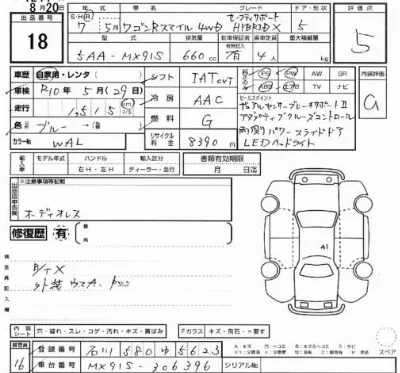 8月20日
出品番号
18
年式 車名 グレード ドア・形状 評価点
S・H・R
7年 5月 ワゴンRスマイル 4WD
セーフティサポート
HYBRID X
5
5
型式 排気量 新車保証書 乗車定員 最大積載量
5AA-MX91S 660cc 有 4人
車歴 自家用・レンタ
シフト IAT CVT
PS PW AW SR
内装評価
車検 R10年 5月(29日)
冷房 AAC
ABS TV ナビ
a
走行 1,515 km
燃料 G
セールスポイント
デュアルセンサーブレーキサポートⅡ
アダプティブクルーズコントロール
両側パワースライドドア
LEDヘッドライト
色 ブルー
カラーNo. WAL
リサイクル料金 8390円
輸入車 モデル年式 ハンドル 輸入区分
年 右H・左H ディーラー・並行
書類有効期限
月 日迄
※注意事項等記載
オーディオレス
修復歴 有
検査員記入欄
B/TX
A1
内装シート 穴・破れ・スレ・コゲ・汚れ・キズ・黄ばみ
Fガラス キズ・飛石・×要す
スペア
16
登録番号 石川580ゆ5623
車台番号 MX91S-306396
シリアルNo.